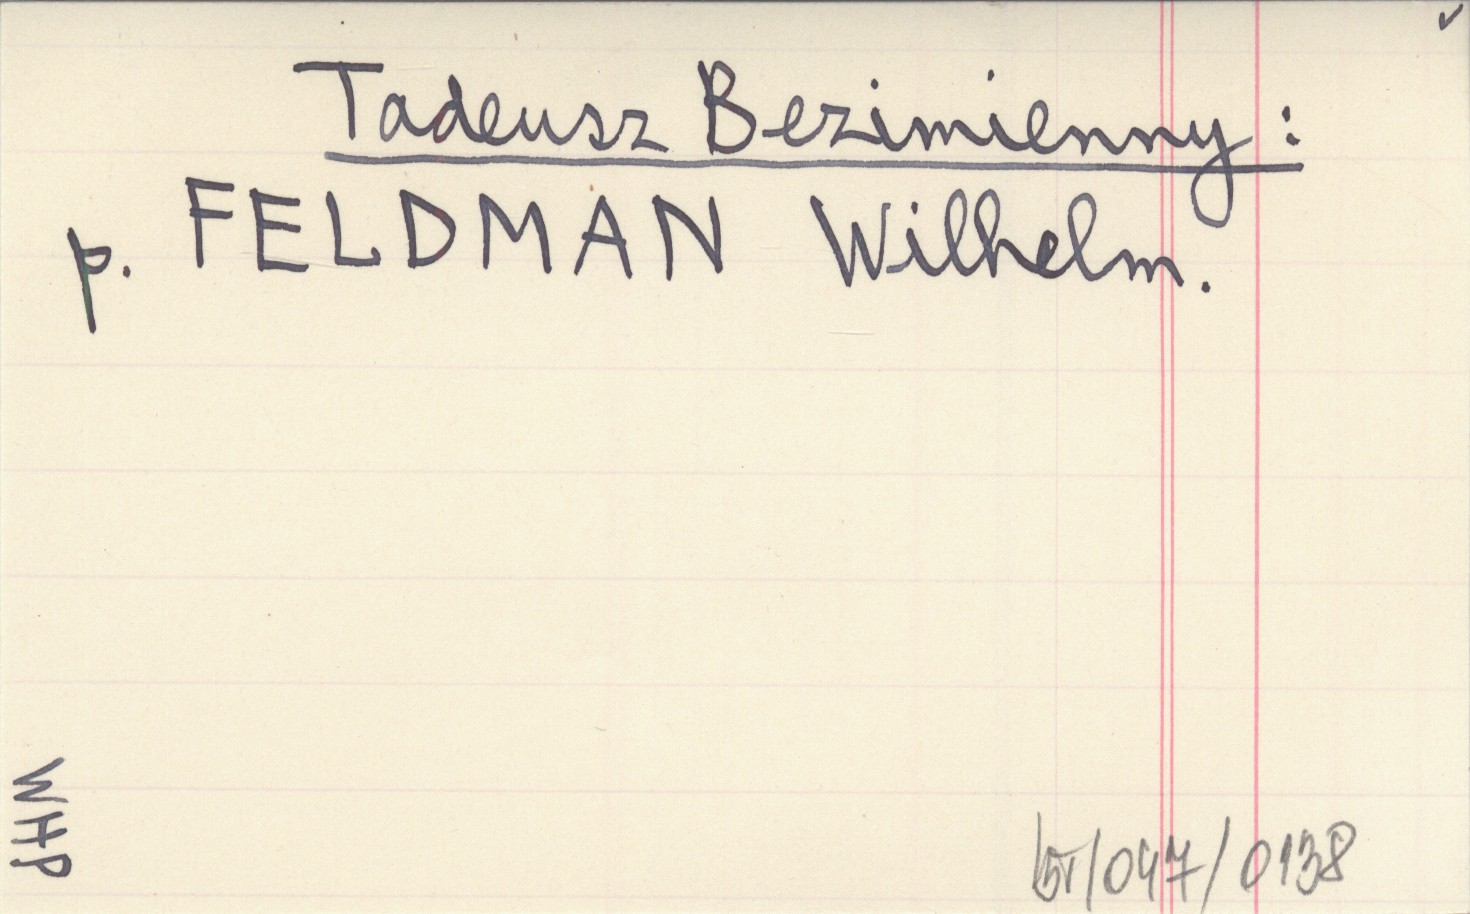 Tadeusz Bezimienny:
p. FELDMAN Wilhelm.
WHP
br/047/0138